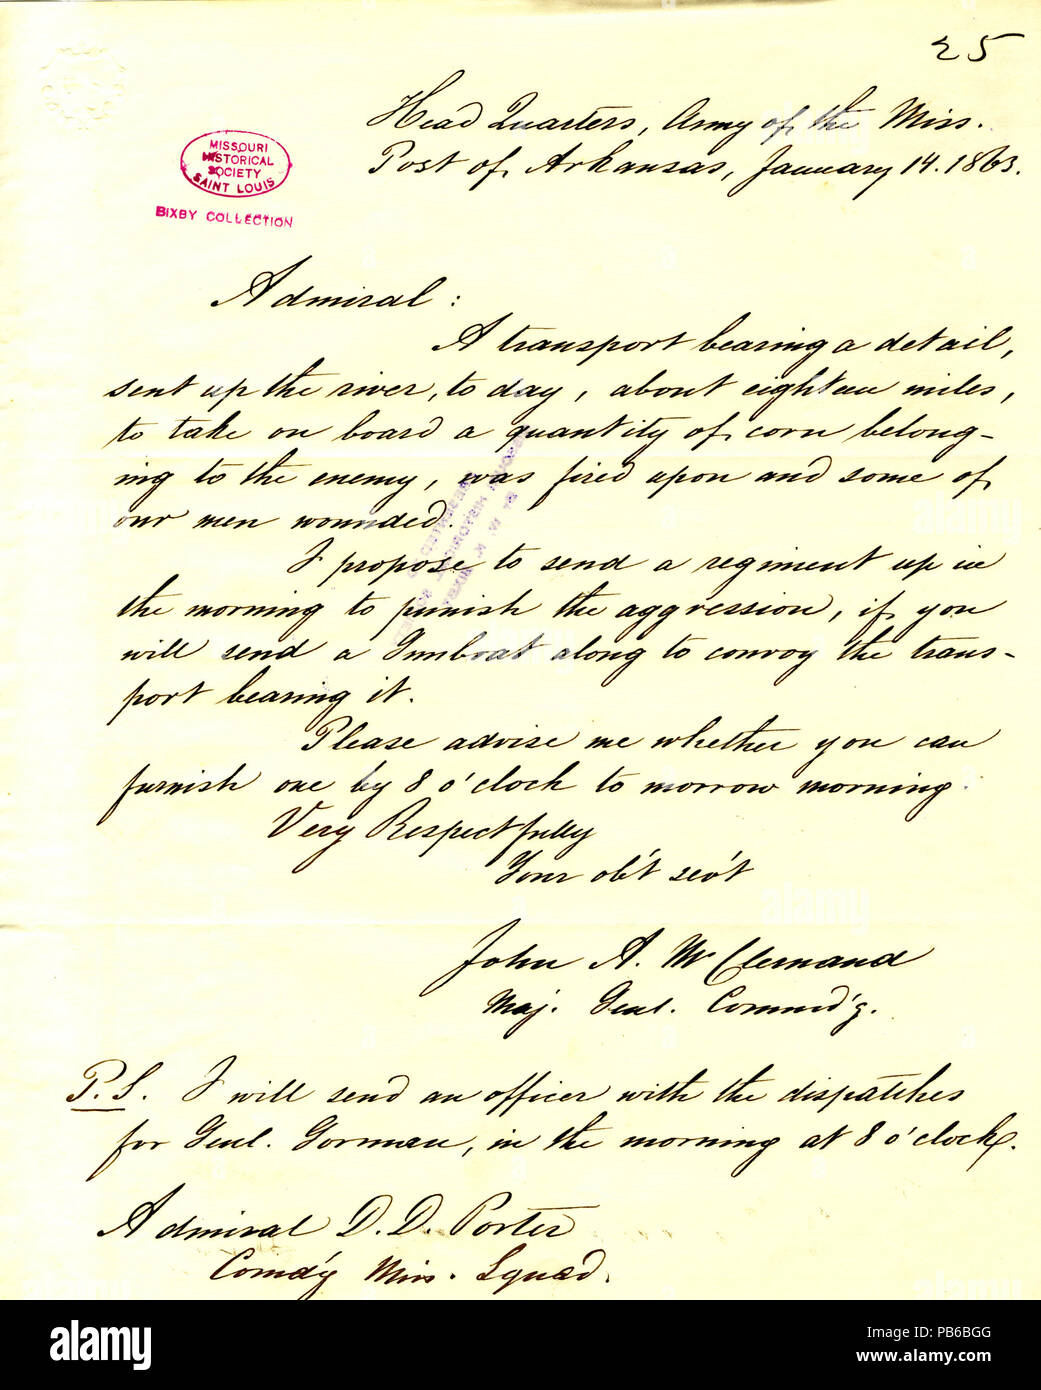 25
Head Quarters, Army of the Miss.
Post of Arkansas, January 14. 1863.
MISSOURI
HISTORICAL
SOCIETY
SAINT LOUIS
BIXBY COLLECTION
Admiral :
A transport bearing a detail,
sent up the river, to day, about eighteen miles,
to take on board a quantity of corn belong-
ing to the enemy, was fired upon and some of
our men wounded.
I propose to send a regiment up in
the morning to punish the aggression, if you
will send a Gunboat along to convoy the trans-
port bearing it.
Please advise me whether you can
furnish one by 8 o'clock to morrow morning.
Very Respectfully
Your ob't serv't
John A. McClernand
Maj. Genl. Commd'g.
P.S. I will send an officer with the dispatches
for Genl. Gorman, in the morning at 8 o'clock.
Admiral D. D. Porter
Comd'g Miss. Squad.
alamy
Image ID: PB6BGG
www.alamy.com